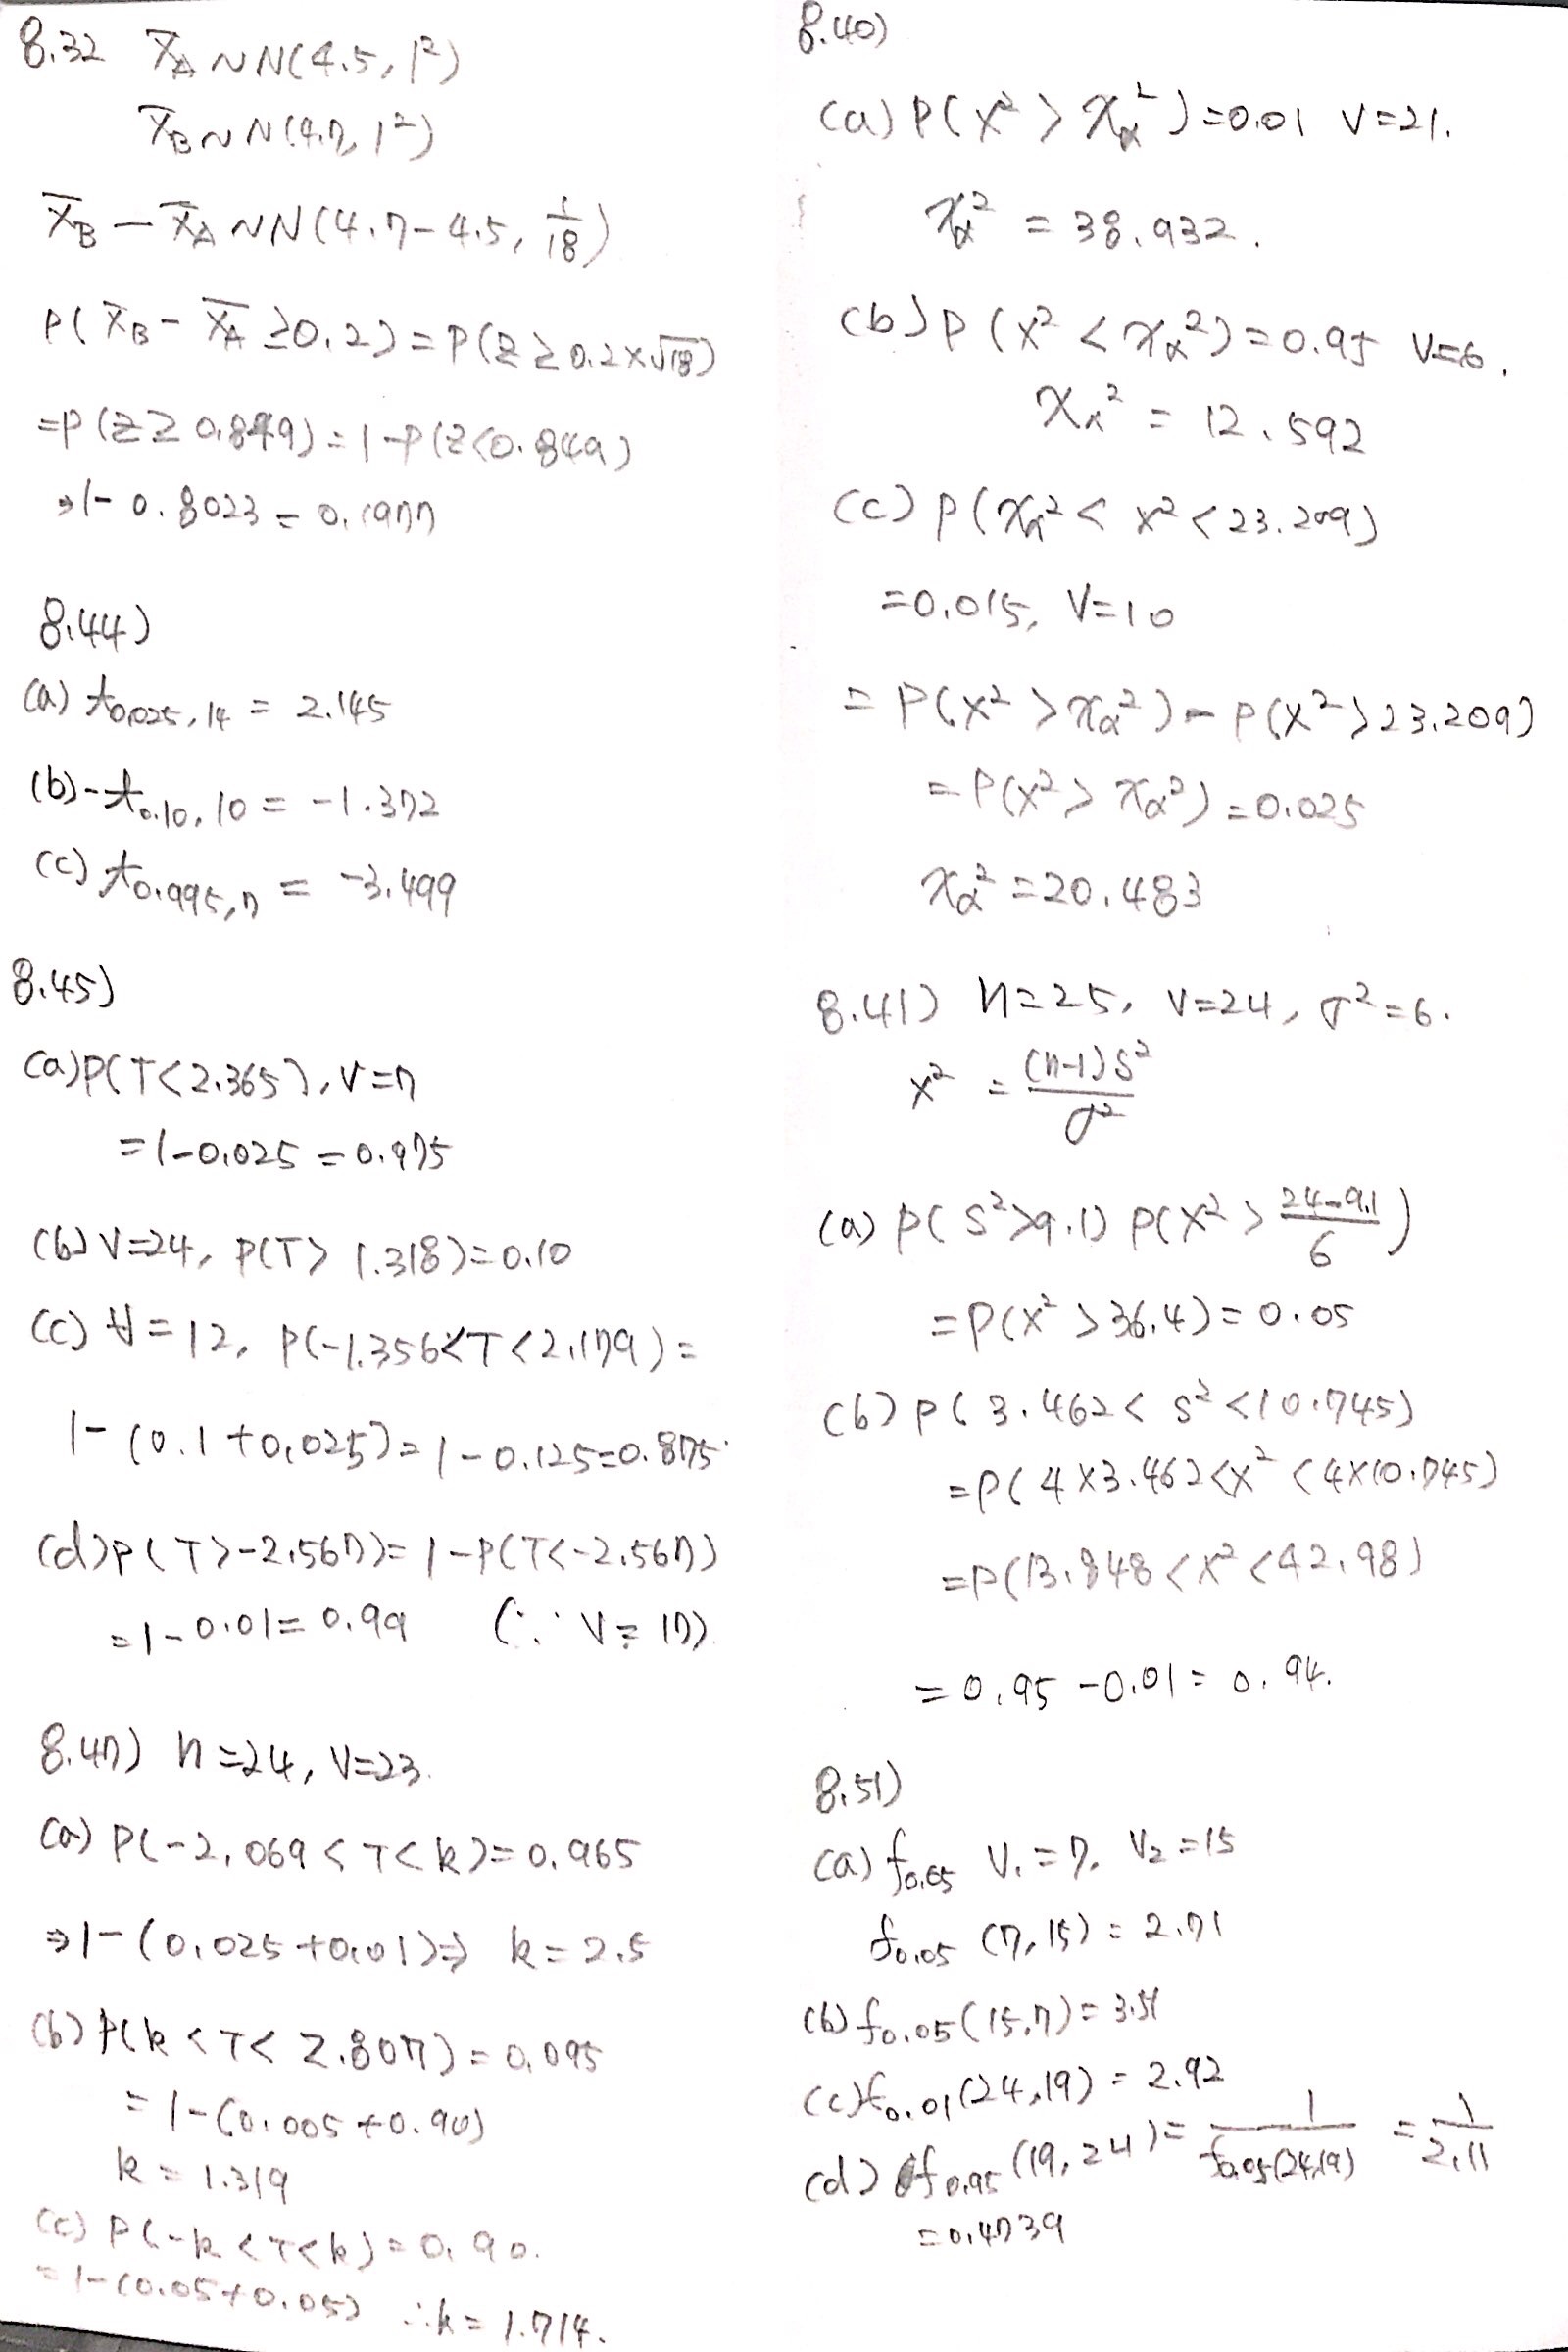 8.32 X̄_A ~ N(4.5, 1²)
X̄_B ~ N(4.7, 1²)
X̄_B - X̄_A ~ N(4.7-4.5, 1/18)
P(X̄_B - X̄_A ≥ 0.2) = P(Z ≥ 0.2×√18)
= P(Z ≥ 0.849) = 1-P(Z<0.849)
⇒ 1-0.8023 = 0.1977
8.44)
(a) t0.025, 14 = 2.145
(b) -t0.10, 10 = -1.372
(c) t0.995, 7 = -3.499
8.45)
(a) P(T<2.365), v=7
= 1-0.025 = 0.975
(b) v=24, P(T> 1.318)=0.10
(c) v=12, P(-1.356<T<2.179) =
1-(0.1+0.025) = 1-0.125=0.875
(d) P(T>-2.567) = 1-P(T<-2.567)
= 1-0.01 = 0.99 (∵ v=17)
8.47) n=24, v=23.
(a) P(-2.069<T<k)=0.965
⇒ 1-(0.025+0.01) ⇒ k=2.5
(b) P(k<T<2.807)=0.095
= 1-(0.005+0.90)
k = 1.319
(c) P(-k<T<k)=0.90.
= 1-(0.05+0.05) ∴k = 1.714.
8.40)
(a) P(X² > χα²)=0.01 v=21.
χα² = 38.932.
(b) P(X² < χα²)=0.95 v=6.
χα² = 12.592
(c) P(χα² < X² < 23.209)
=0.015, v=10
= P(X² > χα²) - P(X² > 23.209)
= P(X² > χα²) = 0.025
χα² = 20.483
8.41) n=25, v=24, σ²=6.
X² = (n-1)S²/σ²
(a) P(S²>9.1) P(X² > 24-9.1/6)
= P(X² > 36.4) = 0.05
(b) P(3.462 < S² < 10.745)
= P(4×3.462 < X² < 4×10.745)
= P(13.848 < X² < 42.98)
= 0.95 - 0.01 = 0.94.
8.51)
(a) f0.05 v₁=7, v₂=15
f0.05 (7, 15) = 2.71
(b) f0.05 (15, 7) = 3.51
(c) f0.01 (24, 19) = 2.92
(d) f0.95 (19, 24) = 1/f0.05(24,19) = 1/2.11
= 0.4739